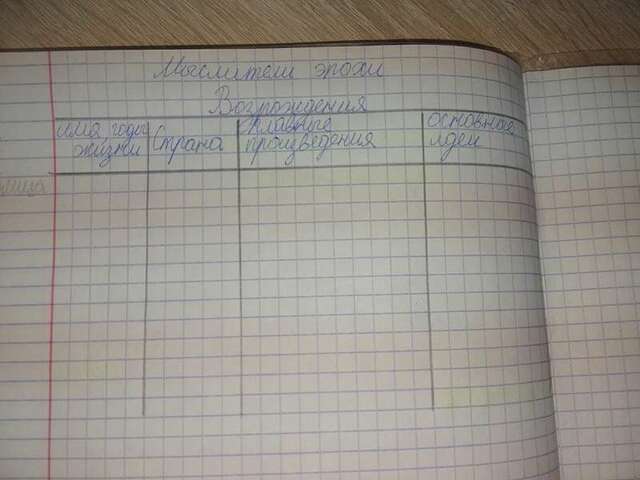 Мыслители эпохи
Возрождения
имя годы жизни
Страна
Главные произведения
основные идеи